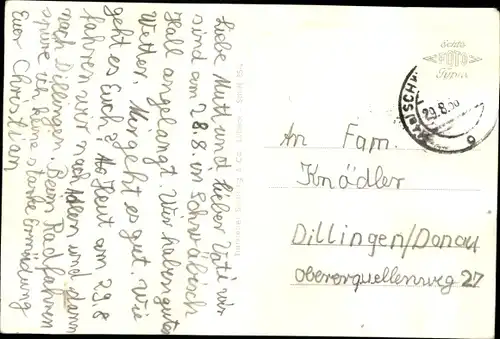 Liebe Mutti und lieber Vati wir
sind am 28.8. in Schwäbisch
Hall angelangt. Wir haben gutes
Wetter. Mir geht es gut. Wie
geht es Euch? Heut am 29.8
fahren wir nach Aalen und dann
nach Dillingen. Beim Radfahren
spüre ich keine starke Ermüdung
Euer Christian
Echte
FOTO
29.8.
An Fam.
Knödler
Dillingen/Donau
oberequellenweg 27